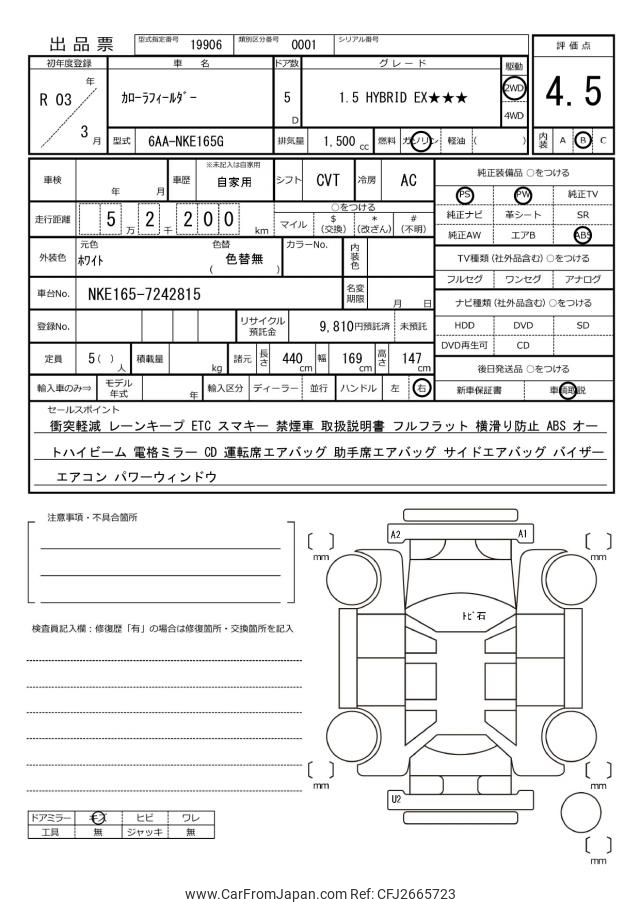 出品票 型式指定番号 19906 類別区分番号 0001 シリアル番号
初年度登録 車 名 ドア数 グレード 駆動 評価点
R 03 年 3 月 カローラフィールダー 5 D 1.5 HYBRID EX★★★ 2WD 4WD 4.5
型式 6AA-NKE165G 排気量 1,500 cc 燃料 ガソリン 軽油 ( ) 内装 A B C
車検 年 月 車歴 ※未記入は自家用 自家用 シフト CVT 冷房 AC 純正装備品 ○をつける
PS PW 純正TV
走行距離 5 2 万 千 2 0 0 km ○をつける マイル $ (交換) * (改ざん) # (不明) 純正ナビ 革シート SR
純正AW エアB ABS
外装色 元色 ホワイト 色替 ( 色替無 ) カラーNo. 内装色 TV種類 (社外品含む) ○をつける
フルセグ ワンセグ アナログ
車台No. NKE165-7242815 名変期限 月 日 ナビ種類 (社外品含む) ○をつける
登録No. リサイクル預託金 9,810円預託済 未預託 HDD DVD SD
DVD再生可 CD
定員 5( ) 人 積載量 kg 諸元 長さ 440 cm 幅 169 cm 高さ 147 cm 後日発送品 ○をつける
輸入車のみ⇒ モデル年式 年 輸入区分 ディーラー 並行 ハンドル 左 右 新車保証書 車輌取説
セールスポイント
衝突軽減 レーンキープ ETC スマキー 禁煙車 取扱説明書 フルフラット 横滑り防止 ABS オー
トハイビーム 電格ミラー CD 運転席エアバッグ 助手席エアバッグ サイドエアバッグ バイザー
エアコン パワーウィンドウ
注意事項・不具合箇所
検査員記入欄：修復歴「有」の場合は修復箇所・交換箇所を記入
A2 A1
mm mm
トビ石
mm mm
U2
mm
ドアミラー キズ ヒビ ワレ
工具 無 ジャッキ 無
www.CarFromJapan.com Ref: CFJ2665723